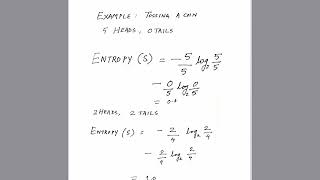 EXAMPLE: TOSSING A COIN
5 HEADS, 0 TAILS
ENTROPY (S) = - 5/5 log2 5/5
- 0/5 log2 0/5
= 0.
2 HEADS, 2 TAILS
ENTROPY (S) = - 2/4 log2 2/4
- 2/4 log2 2/4